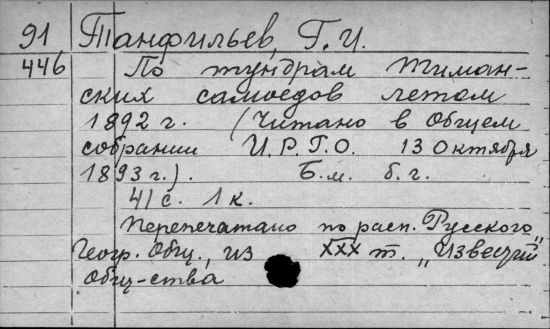 91 Танфильев, Г.И.
446 По тундрам Тиман-
ских самоедов летом
1892 г. (Читано в Общем
собрании И.Р.Г.О. 13 Октября
1893 г.). Б.м. б.г.
41 с. 1 к.
Перепечатано по расп. Русского
Геогр. Общ., из XXX т. „Известий"
Общ-ства